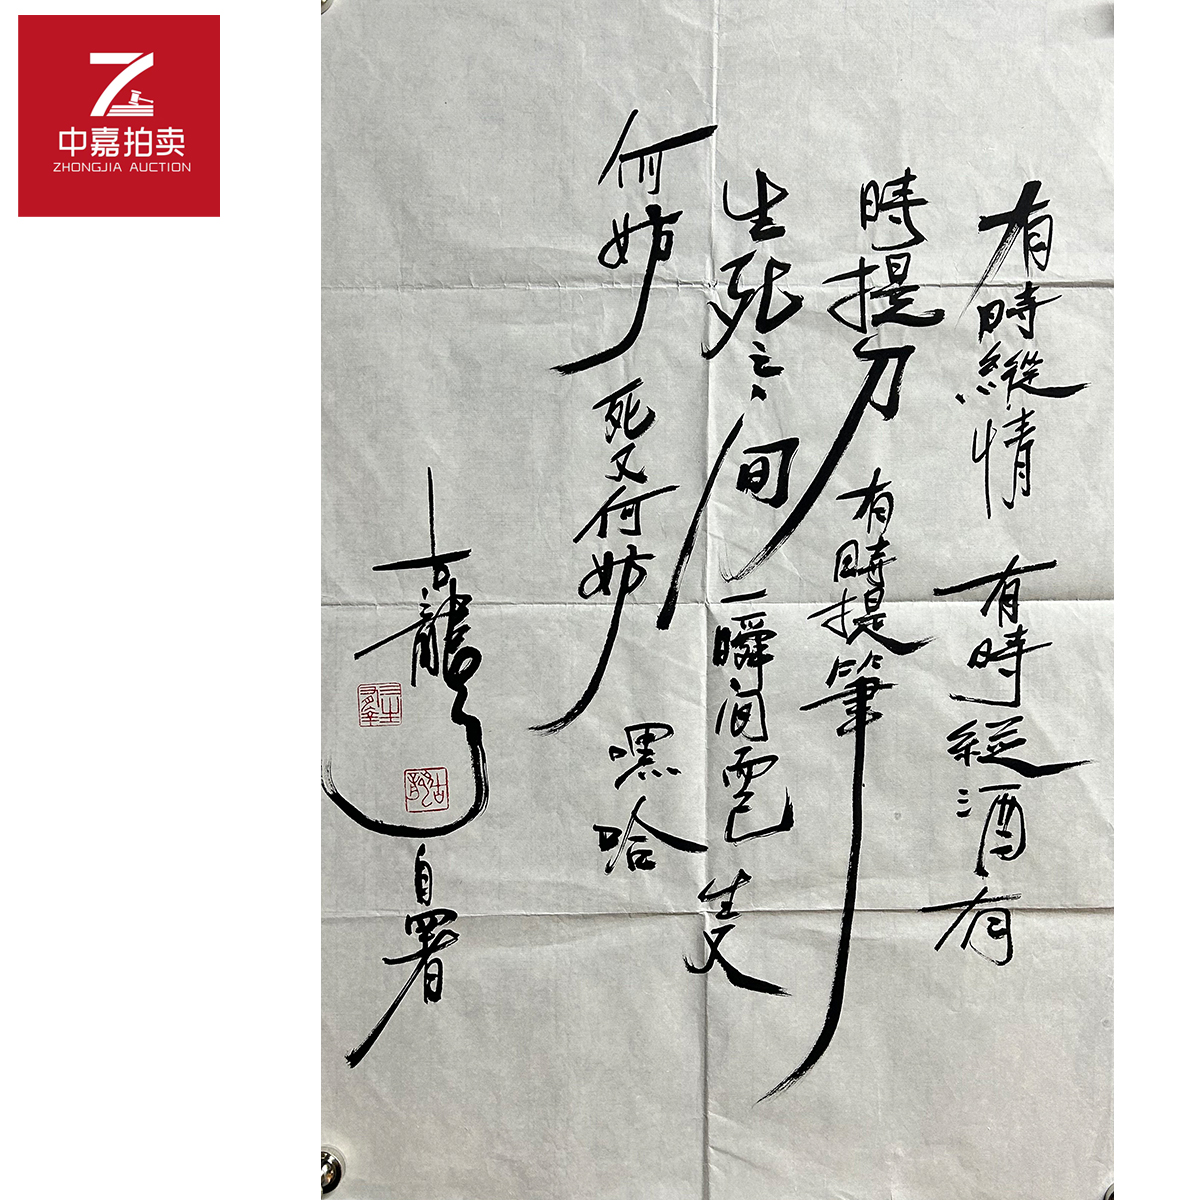 中嘉拍卖
ZHONGJIA AUCTION
有時縱情 有時縱酒 有
時提刀 有時提筆
生死之间 一瞬间而已 生又
何妨 死又何妨 嘿哈
古龍 自署